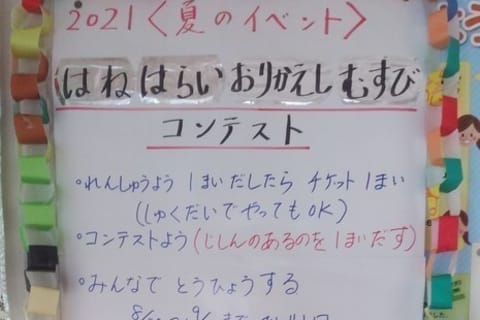 2021〈夏のイベント〉
はねはらいおりかえしむすび
コンテスト
・れんしゅうよう 1まいだしたら チケット1まい
(しゅくだいでやってもOK)
・コンテストよう(じしんのあるのを1まいだす)
・みんなで とうひょうする